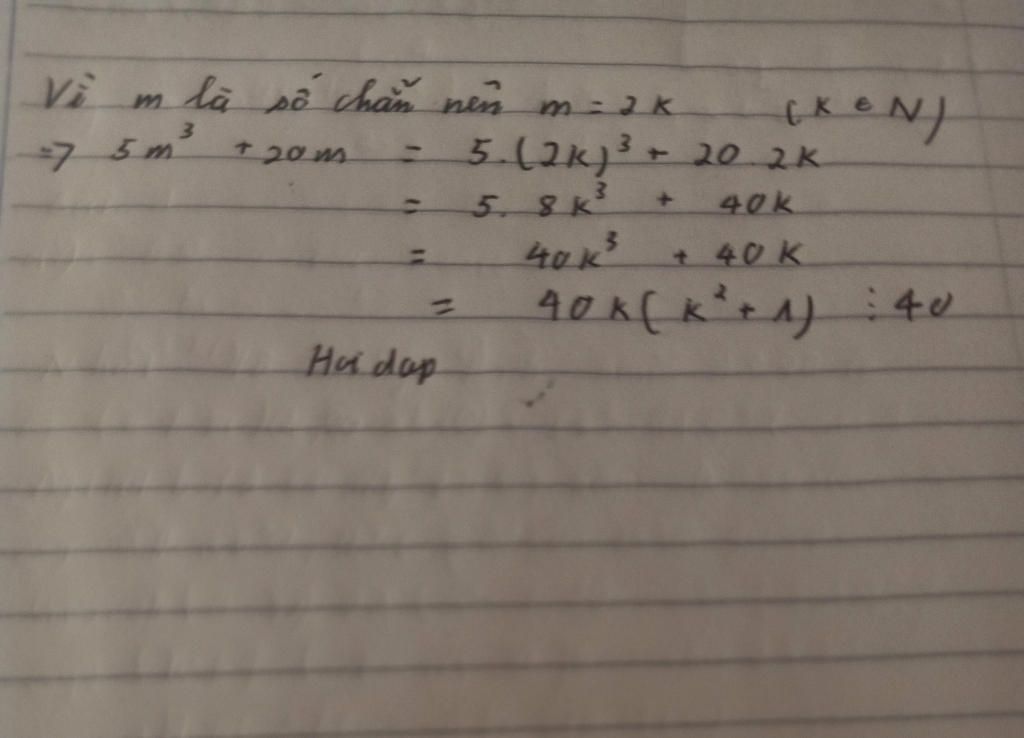 Vì m là số chẵn nên m = 2k (k ∈ N)
=> 5m³ + 20m = 5.(2k)³ + 20.2k
= 5. 8k³ + 40k
= 40k³ + 40k
= 40k(k² + 1) ⋮ 40
Hoi dap